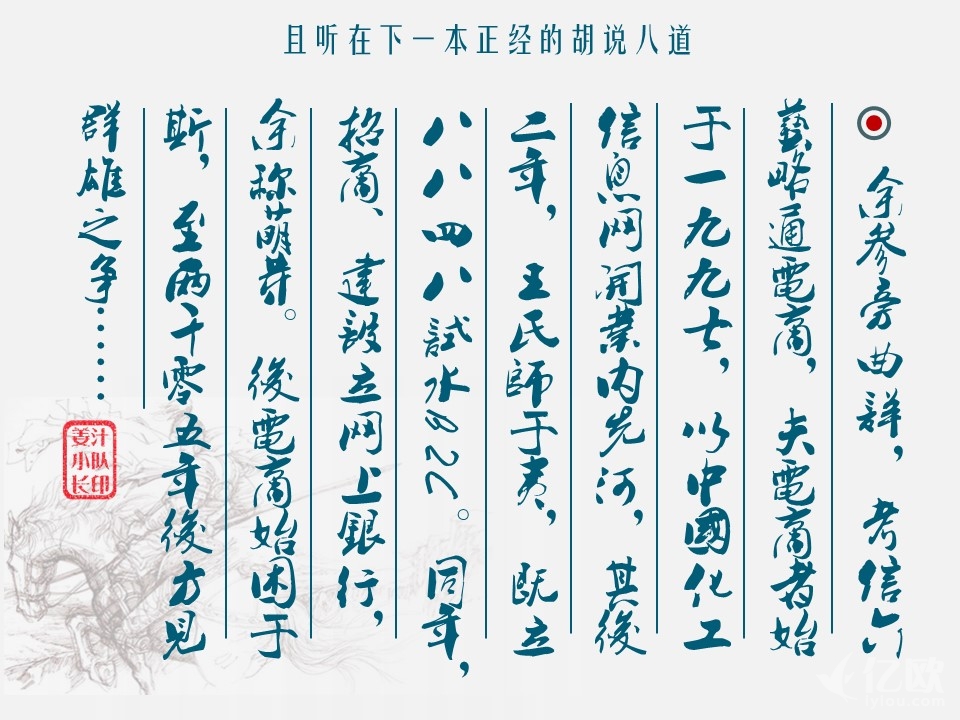 且听在下一本正经的胡说八道
余参旁曲群，考信六
藝略通電商，夫電商者始
于一九九七，以中國化工
信息网開業内先河，其後
二年，王氏師于夷，既立
八八四八試水B2C。同年，
招商、建設立网上銀行，
余称萌芽。後電商始困于
斯，至兩千零五年後方見
群雄之争………
姜汁
小队
长印
亿欧
iyiou.com